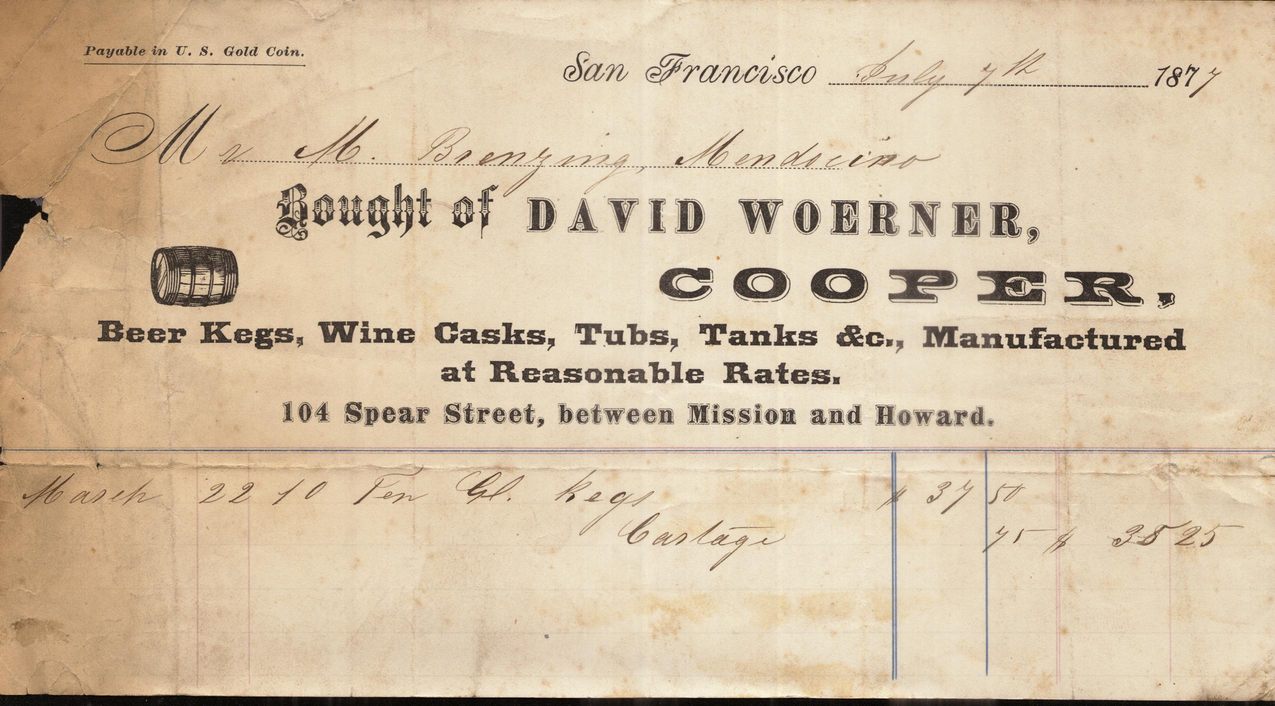 Payable in U. S. Gold Coin.
San Francisco July 7th 1877
Mr M. Brenzing, Mendocino
Bought of DAVID WOERNER,
COOPER,
Beer Kegs, Wine Casks, Tubs, Tanks &c., Manufactured
at Reasonable Rates.
104 Spear Street, between Mission and Howard.
March 22 10 Ten Gl. Kegs $ 37 50
Cartage 75 $ 38 25